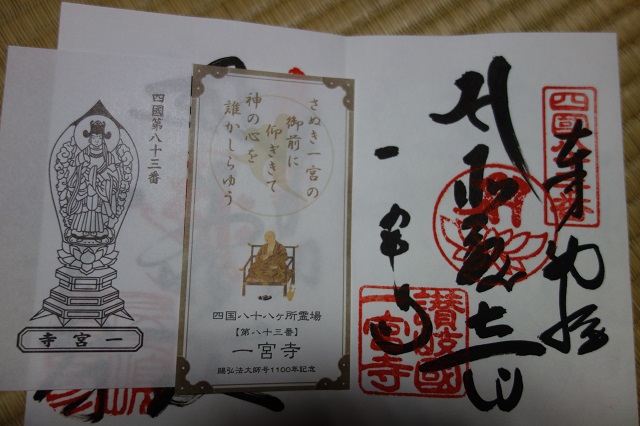 四國第八十三番
一宮寺
さぬき一宮の
御前に
仰ぎきて
神の心を
誰かしらゆう
四国八十八ヶ所霊場
【第八十三番】
一宮寺
賜弘法大師号1100年記念
奉納経
一宮寺
讃岐國
一宮寺